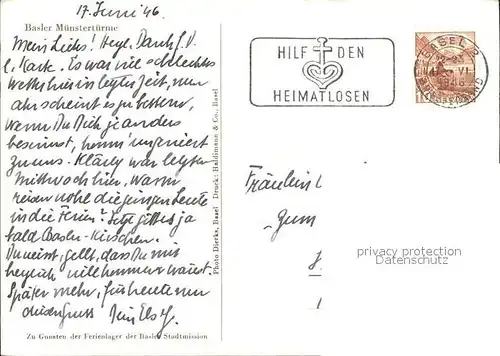 17. Juni 46.
Basler Münstertürme
Mein Liebs! Herzl. Dank f. D.
l. Karte. Es war viel schlechtes
Wetter hier in letzter Zeit, nun
scheint es zu bessern,
wenn Du Dich je anders
besinnst, komm' ungeniert
zu uns. Klärly war letzten
Mittwoch hier, wann
reisen wohl die jungen Leute
in die Ferien? Jetzt gibt es ja
bald Basler-Kirschen.
Du weisst, gellt, dass Du mir
herzlich willkommen wärest.
Später mehr, für heute nur
diesen Gruss Dein Elsy.
Zu Gunsten der Ferienlager der Basler Stadtmission
Photo Dierks, Basel Druck: Haldimann & Co., Basel
HILF DEN
HEIMATLOSEN
BASEL 2
VI.
1946
BRIEFVERSAND
Fräulein
zum
privacy protection
Datenschutz